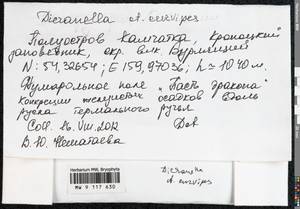 Dicranella cf. curvipes
Полуостров Камчатка, Кроноцкий
заповедник, окр. влк. Бурлящий
N: 54,32654; E 159,97036; h = 1040 м.
Фумарольное поле "Пасть дракона"
конкреции железистых осадков вдоль
русла термального ручья
Coll. 16.VIII.2012 Det.
В. Ю. Нешатаева
Herbarium MW, Bryophyta
MW 9 117 630
Dicranella
cf. curvipes